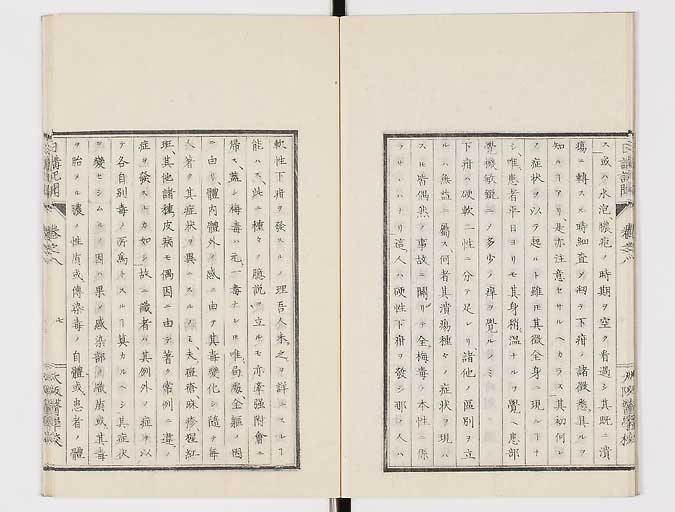 ス或ハ水泡膿疱ノ時期ヲ空ク看過シ其既ニ潰
瘍ニ轉スル時細査シ初テ下疳ノ諸徴悉具ルヲ
知ルアリ、是亦注意セサルヘカラス其初何レ
ノ症状ヲ以テ起ルト雖モ其徴全身ニ現ルヿナ
シ、唯患者平日ヨリモ其身稍温ナルヲ覺ヘ患部
覺機敏鋭ニノ多少ノ痒ヲ覺ルノミ
下疳ハ硬軟二性ニ分テ足レリ諸他ノ區別ヲ立
ルハ無益ニ屬ス何者其潰瘍種々ノ症状ヲ現ハ
スル皆偶然ノ事故ニ關リテ全梅毒ノ本性ニ係
ラサレハナリ這人ハ硬性下疳ヲ發シ那ノ人ハ
軟性下疳ヲ發スルノ理吾人未之ヲ詳ニスルヿ
能ハス此ニ種々ノ臆説ヲ立ルモ亦牽強附會ニ
帰ス、蓋シ梅毒ハ元一毒ナレ𪜈唯局處全軀ノ因
ニ由リ、體内體外ノ感ニ由テ其毒變化シ隨テ毎
人著ク其症状ヲ異ニスルノミ、夫痘瘡麻疹猩紅
斑、其他諸種皮病モ偶因ニ由テ著ク常例ニ違ノ
症ヲ發スルカ如シ故ニ識者ハ其例外ノ症ヲ以
テ各自別毒ノ所爲トスルヿ莫カルヘシ其症状
ヲ變セシムルノ因ハ果ノ感染部ノ織質或其毒
ヲ胎メル濃ノ性質或傳染毒ノ自體或患者ノ體
日講記聞
卷之八
七
大阪醫學校